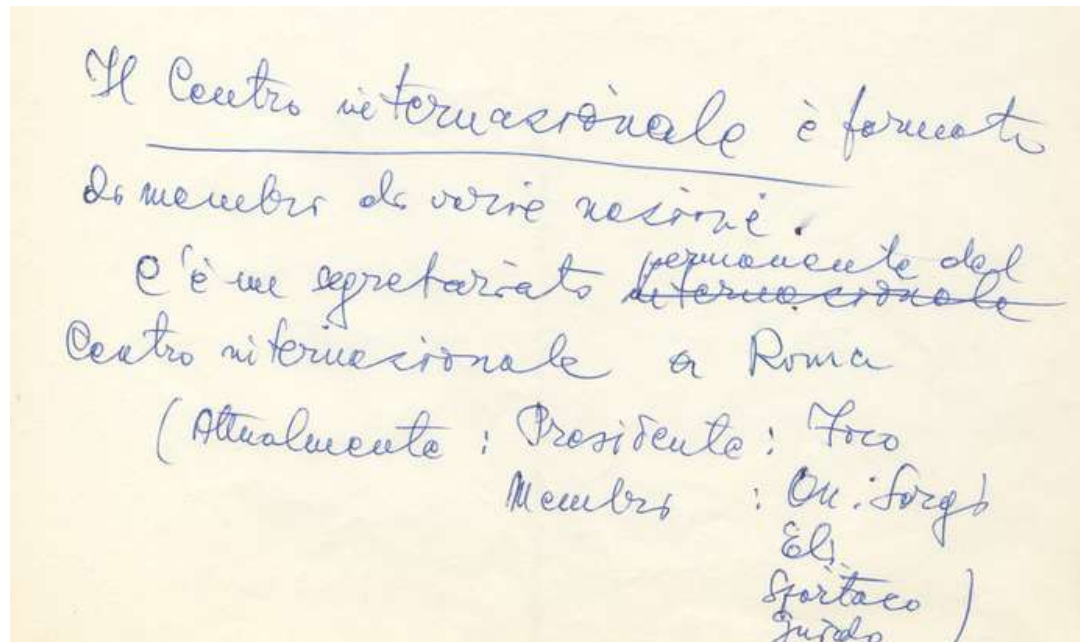 Il Centro internazionale è formato
da membri da varie nazioni.
C'è un segretariato permanente del
internazionale
Centro internazionale a Roma
(Attualmente: Presidente: Foco
Membri : On. Sorgi
Eli
Spartaco )
Guido